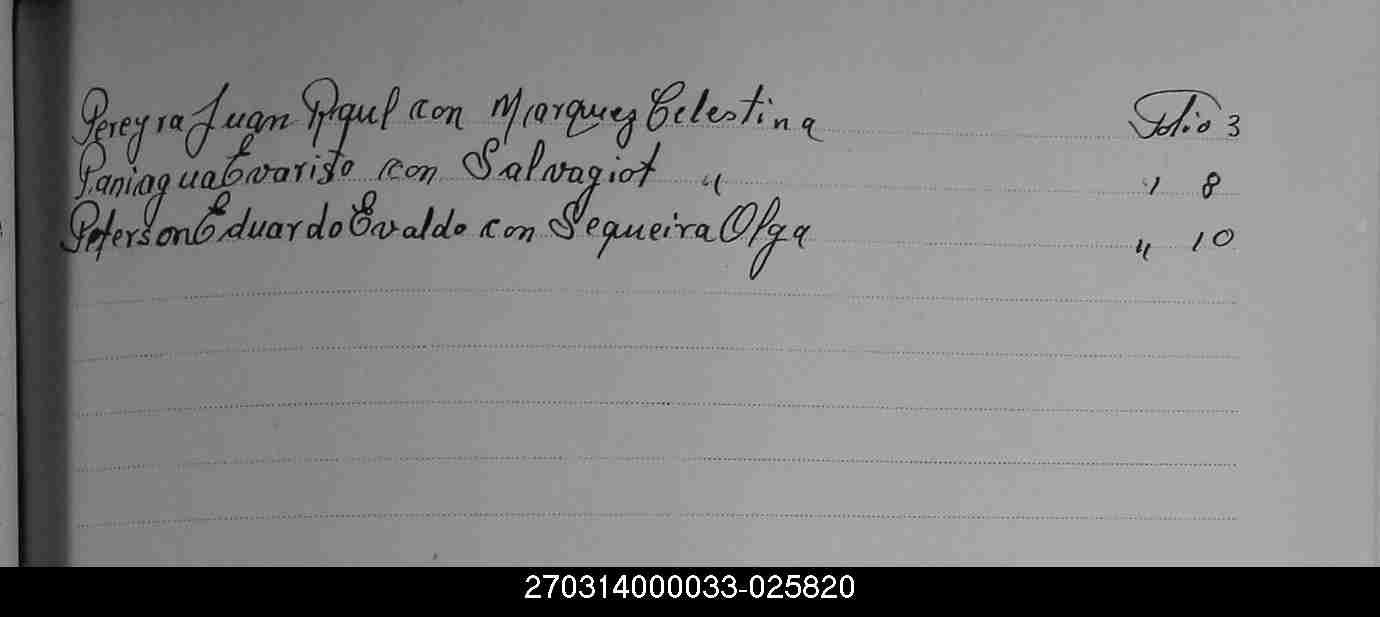 Pereyra Juan Raul con Marquez Celestina Folio 3
Paniagua Evaristo con Salvagiot " " 8
Peterson Eduardo Evaldo con Sequeira Olga " 10
270314000033-025820